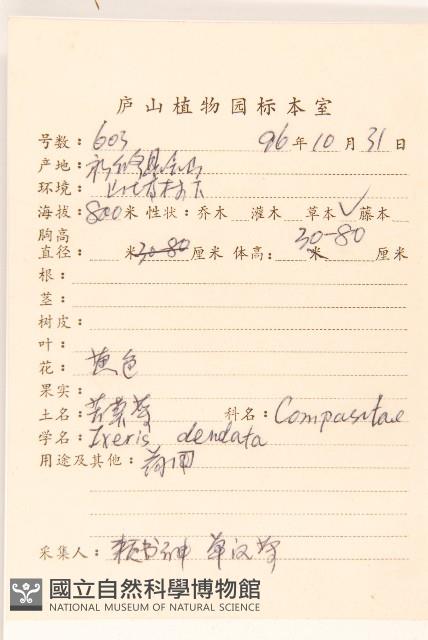 庐山植物园标本室
号数：603 96年10月31日
产地：
环境：山坡
海拔：800米 性状：乔木 灌木 草本✓ 藤本
胸高
直径： 米 30-80 厘米 体高： 30-80 米 厘米
根：
茎：
树皮：
叶：
花：黄色
果实：
土名：苦荬菜 科名：Compasitae
学名：Ixeris dendata
用途及其他：药用
采集人：
國立自然科學博物館
NATIONAL MUSEUM OF NATURAL SCIENCE